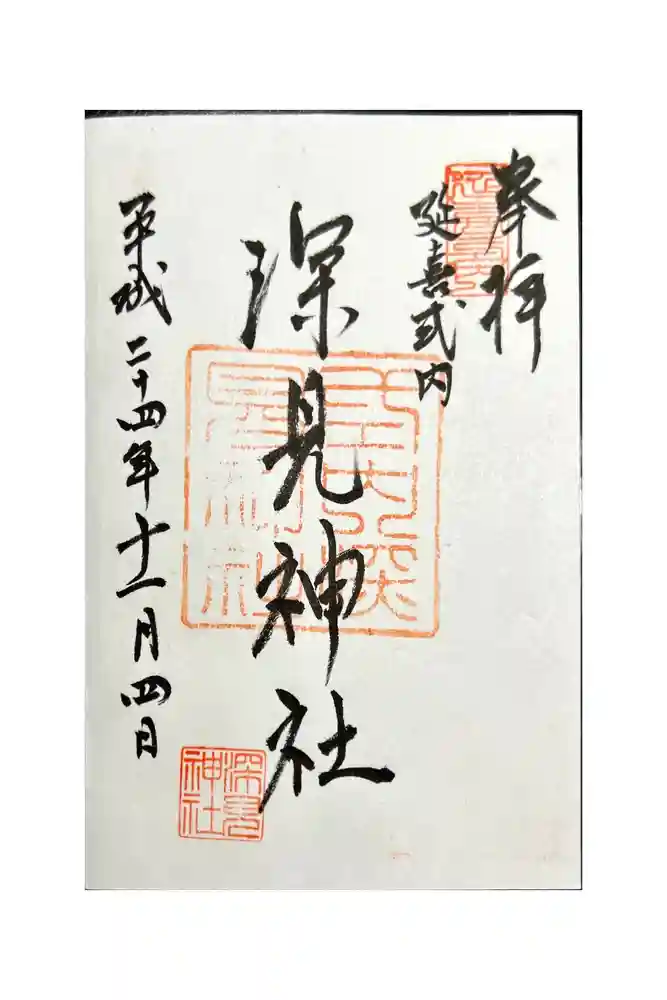 奉拝
延喜式内
深見神社
平成二十四年十一月四日
深見
神社